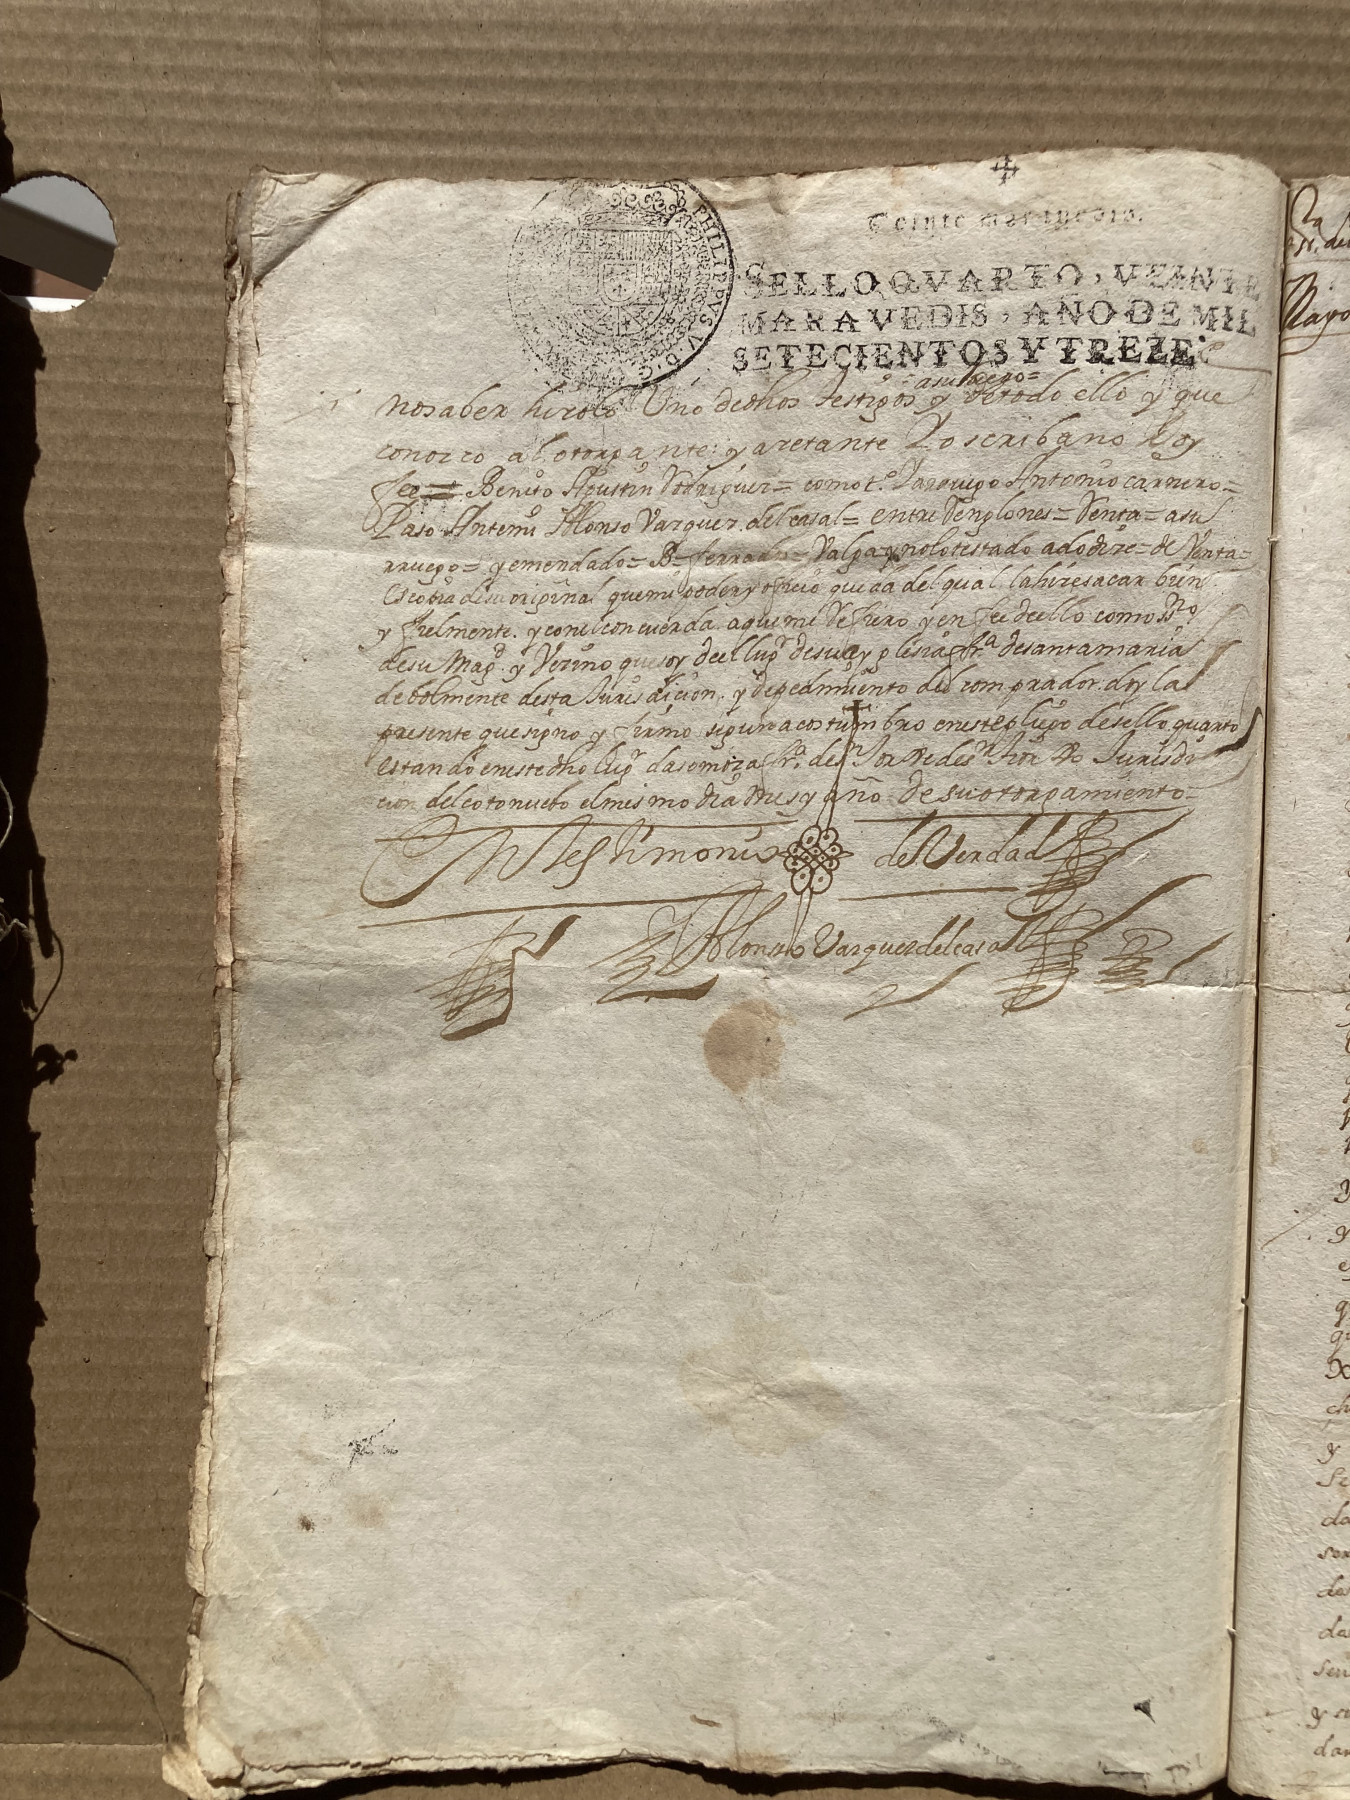 Veinte maravedis.
SELLO QVARTO, VEINTE
MARAVEDIS, AÑO DE MIL
SETECIENTOS Y TREZE
PHILIPPVS V D G
asu Ruego=
no saber hiçolo Uno dedhos testigos y detodo ello y que
conozco al otorgante: y aretante Yo scribano doy
fee = Benito Agustin Rodriguez = como t.º Yaruego Antonio carnero =
Paso Antemi Alonso Vazquez del casal = entre Renglones = Venta = asu
rruego = y emendado = B = ferrados = Valga y nolo testado adodize = de Venta =
Es copia de su original que mi poder y oficio queda del qual la hize sacar bien
y fielmente. y conel concuerda aqueme Refiero y en fee dello como Sno
de su Magd. y Vezino que soy deel lugr de su eyglesia frª de santa maria
de bolmente desta Jurisdicion. y depedimiento del comprador. doy la
presente que signo y firmo sigun acostumbro eneste pliego de sello quarto
estando eneste dho lugr
cion del coto nuebo el mismo dia mes y año de su otorgamiento =
En testimonio de Verdad
Alonsso Vazquez del casal